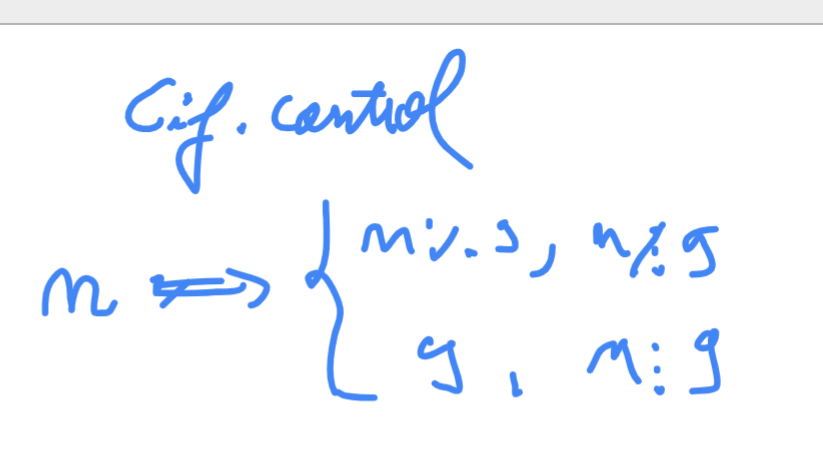 Cif. control
n ⟹ { n%9, n⋮̸9
9, n⋮9